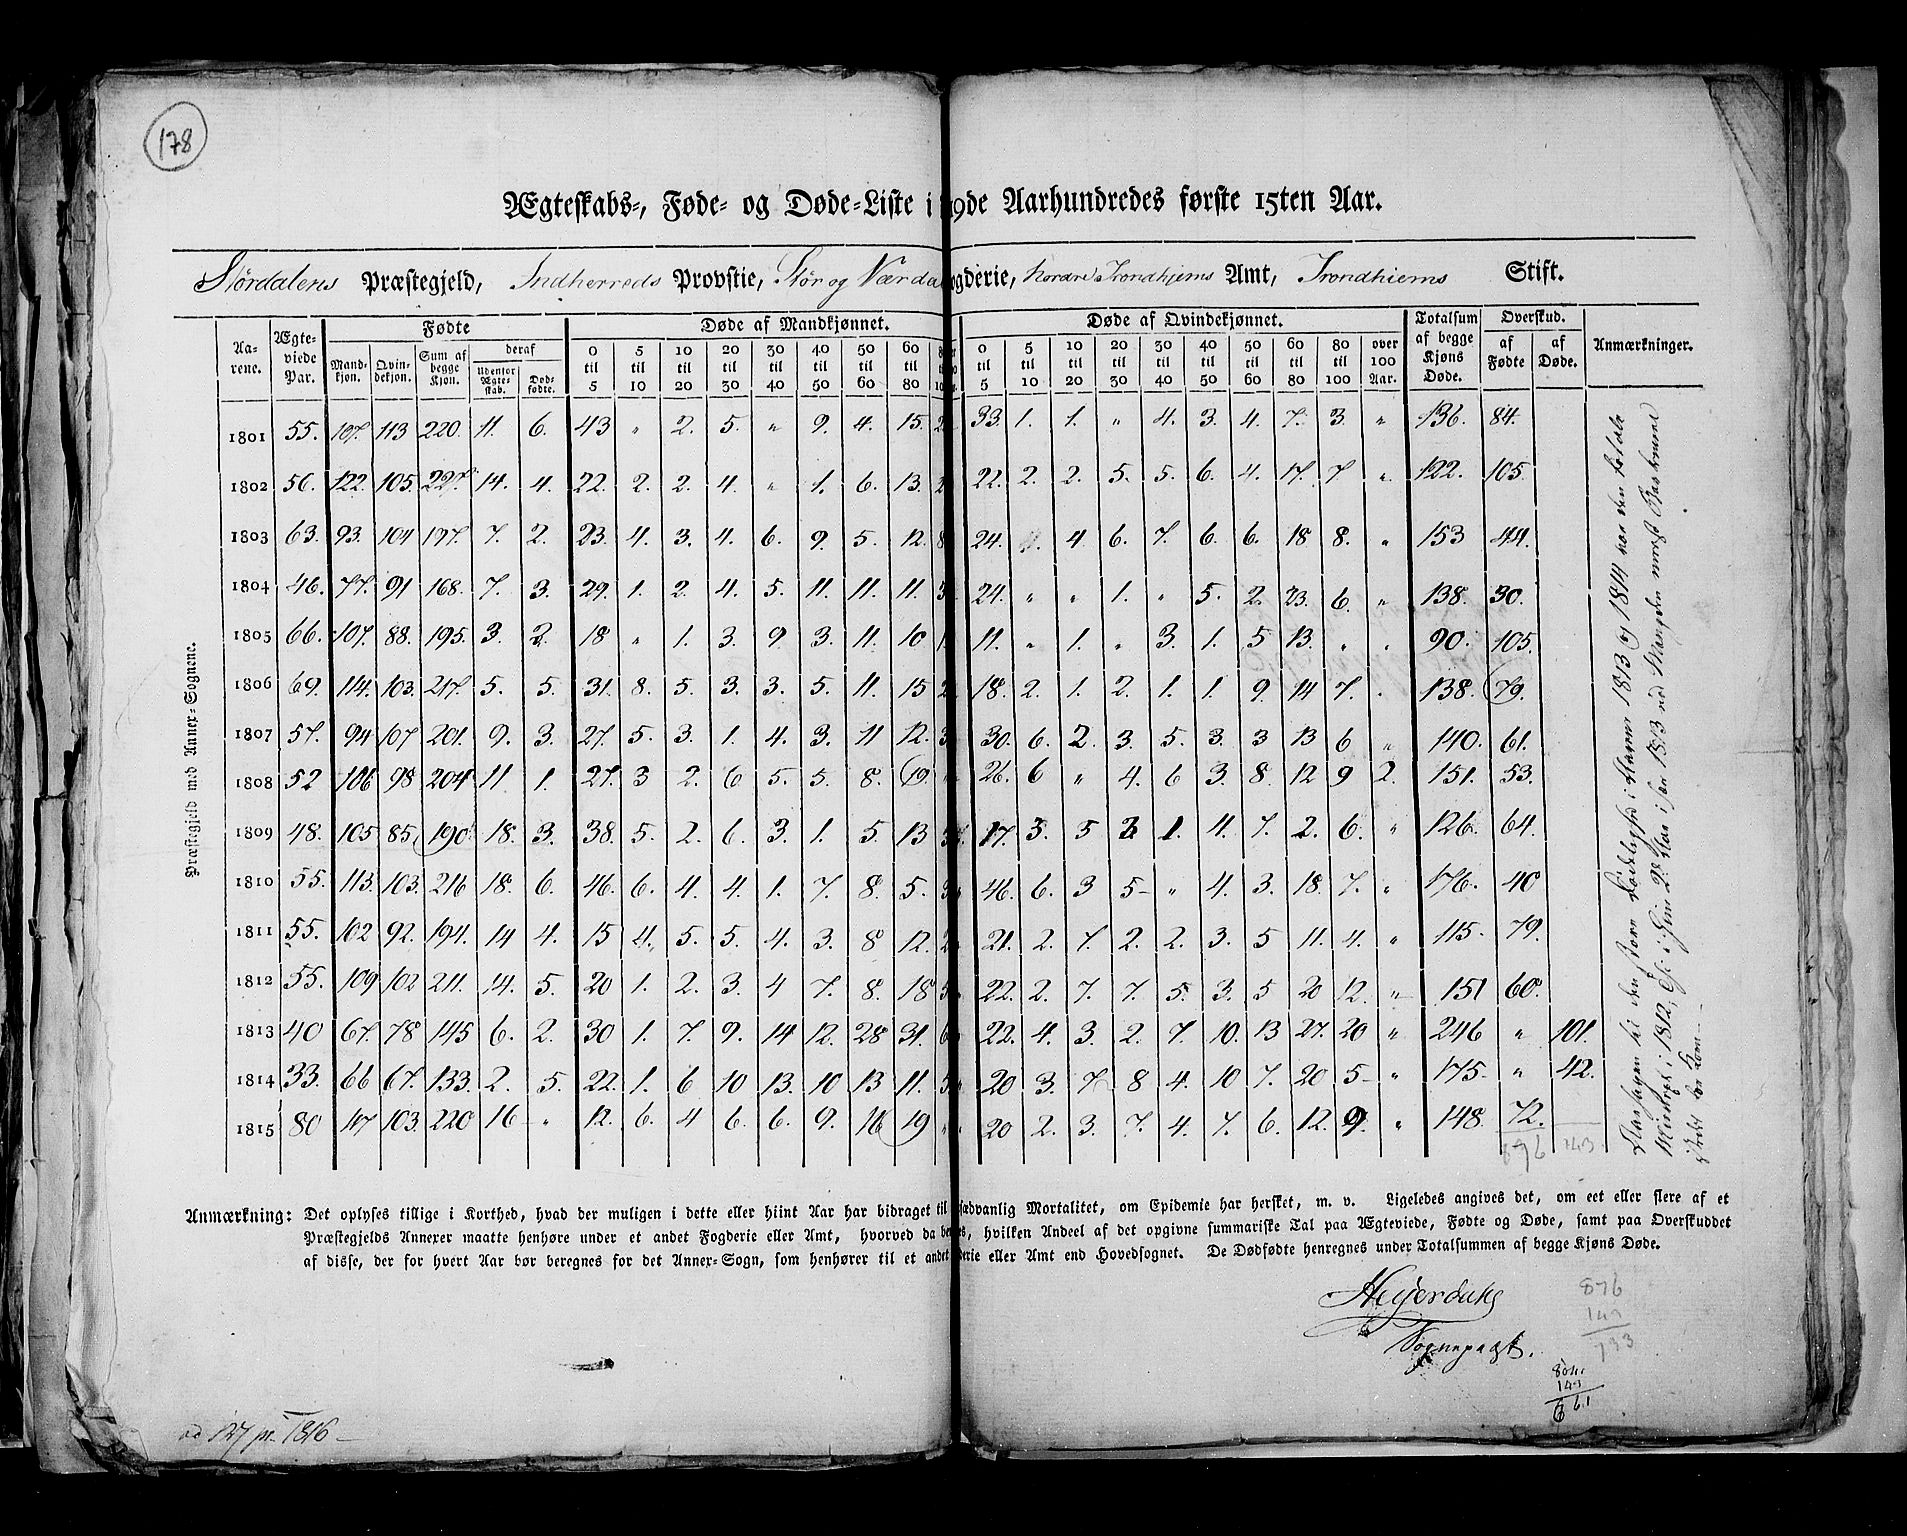 178
Ægteskabs-, Føde- og Døde-Liste i 19de Aarhundredes første 15ten Aar.
Størdalens Præstegjeld, Indherreds Provstie, Stør og Værda ogderie, nordre Trondhjems Amt, Trondhiems Stift.
Aarene. Ægteviede Par. Fødte Døde af Mandkjønnet. Døde af Qvindekjønnet. Totalsum af begge Kjøns Døde. Overskud. Anmærkninger.
Mandkjøn. Qvindekjøn. Sum af begge Kjøn. deraf Udenfor Ægteskab. Dødfødte. 0 til 5 5 til 10 10 til 20 20 til 30 30 til 40 40 til 50 50 til 60 60 til 80 0 til 5 5 til 10 10 til 20 20 til 30 30 til 40 40 til 50 50 til 60 60 til 80 80 til 100 over 100 Aar. af Fødte af Døde.
Præstegjeld med Annex-Sognene.
1801 55. 107. 113 220. 11. 6. 43 " 2. 5. " 9. 4. 15. 2 33. 1. 1. " 4. 3. 4. 7. 3. " 136. 84.
1802 56. 122. 105. 227. 14. 4. 22. 2. 2. 4. " 1. 6. 13. 2 22. 2. 2. 5. 5. 6. 4. 17. 7. " 122. 105.
1803 63. 93. 104 197. 7. 2. 23. 4. 3. 4. 6. 9. 5. 12. 8 24. 4. 6. 7. 6. 6. 18 8. " 153 44.
1804 46. 77. 91 168. 7. 3. 29. 1. 2. 4. 5. 11. 11. 11. 3 24. " " 1. " 5. 2. 23. 6. " 138. 30.
1805 66. 107. 88. 195. 3. 2. 18 " 1. 3. 9 3. 11. 10 1 11. " 1. " 3. 1. 5 13. " " 90. 105.
1806 69. 114. 103. 217. 5. 5. 31. 8. 5. 3. 3. 5. 11. 15 2 18. 2. 1. 2. 1. 1. 9 14 7. " 138. 79.
1807 57. 94 107 201. 9. 3. 27. 5. 3. 1. 4. 3. 11 12. 3 30. 6. 2. 3. 5. 3. 3 13 6 " 140. 61.
1808 52 106 98 204 11 1. 27. 3 2. 6 5. 5. 8. 19. " 26. 6 " 4. 6 3. 8. 12 9 2. 151. 53.
1809 48. 105 85. 190. 18. 3. 38. 5. 2. 6. 3. 1. 5. 13 3 17. 3. 3 2 1. 4. 7. 2. 6. " 126. 64.
1810 55. 113. 103. 216 18. 6. 46. 6. 4. 4. 1. 7. 8. 5. 3 46. 6. 3 5- " 4. 3. 18. 7. " 176. 40
1811 55. 102 92. 194. 14 4. 15 4. 5. 5. 4. 3. 8 12. 2 21. 2. 7. 2. 2. 3. 5 11. 4. " 115. 79.
1812 55. 109 102 211. 14. 5. 20 1. 2. 3. 4 7. 8. 18 5 22. 2. 7. 7. 5. 3. 5 20 12. " 151 60.
1813 40 67. 78 145 6. 2. 30 1. 7. 9. 14 12. 28 31. 6 22. 4. 3. 2. 7. 10. 13 27. 20 " 246 " 101.
1814 33. 66 67. 133. 2. 5. 22. 1. 6 10 13. 10 13 11. 5 20 3. 7 8 4. 10 7. 20 5- " 175- " 42.
1815 80 117 103. 220 16 " 12. 6. 4 6. 6. 9. 16 19 " 20 2. 3. 7. 4. 7. 6. 12. 9. " 148. 72.
143.
Aarsagen til den store Dødelighed i Aaren 1813 og 1814
Anmærkning: Det oplyses tillige i Korthed, hvad der muligen i dette eller hiint Aar har bidraget til sædvanlig Mortalitet, om Epidemie har hersket, m. v. Ligeledes angives det, om eet eller flere af et
Præstegjelds Annexer maatte henhøre under et andet Fogderie eller Amt, hvorved da be es, hvilken Andeel af det opgivne summariske Tal paa Ægteviede, Fødte og Døde, samt paa Overskuddet
af disse, der for hvert Aar bør beregnes for det Annex-Sogn, som henhører til et andet derie eller Amt end Hovedsognet. De Dødfødte henregnes under Totalsummen af begge Kjøns Døde.
Heyerdahl
Sognepræst.
876
143
733
143
661
ad 127 pr. 1816